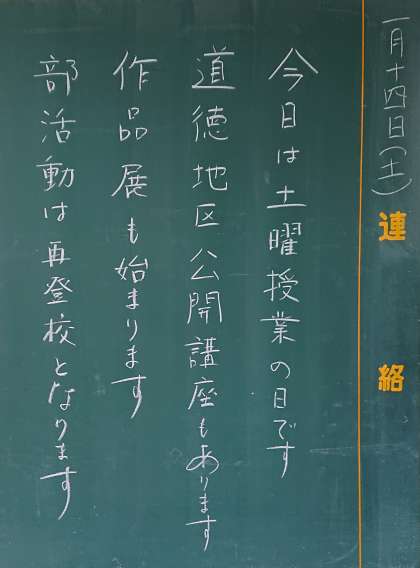 一月十四日(土)
連絡
今日は土曜授業の日です
道徳地区公開講座もあります
作品展も始まります
部活動は再登校となります